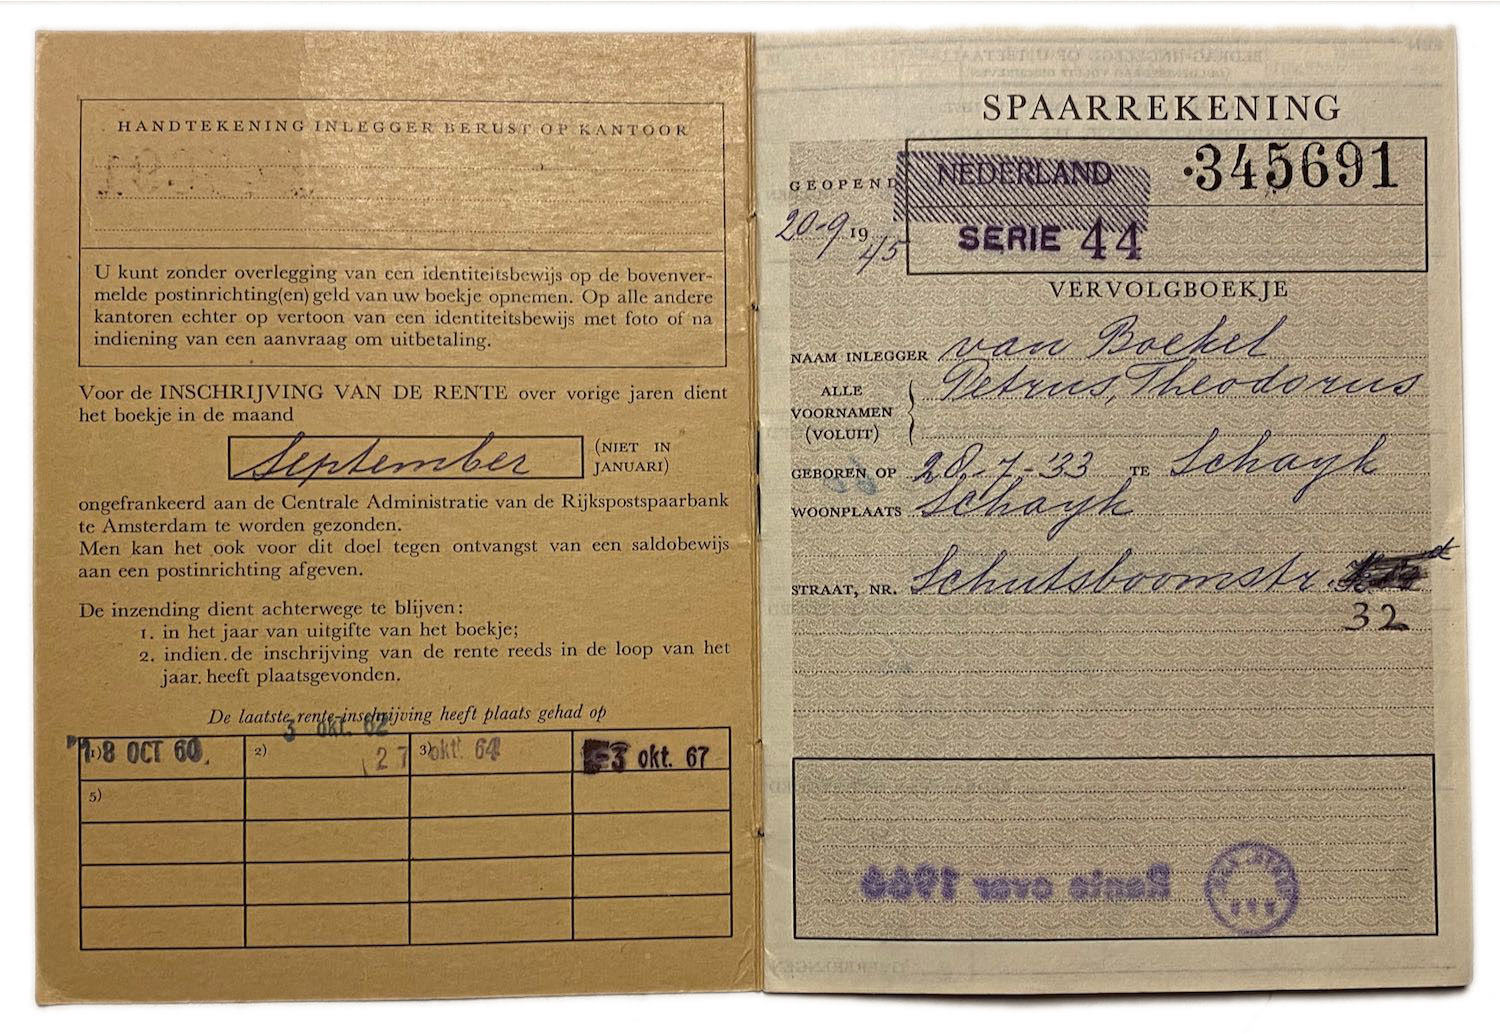 HANDTEKENING INLEGGER BERUST OP KANTOOR
U kunt zonder overlegging van een identiteitsbewijs op de bovenver-
melde postinrichting(en) geld van uw boekje opnemen. Op alle andere
kantoren echter op vertoon van een identiteitsbewijs met foto of na
indiening van een aanvraag om uitbetaling.
Voor de INSCHRIJVING VAN DE RENTE over vorige jaren dient
het boekje in de maand
September (NIET IN
JANUARI)
ongefrankeerd aan de Centrale Administratie van de Rijkspostspaarbank
te Amsterdam te worden gezonden.
Men kan het ook voor dit doel tegen ontvangst van een saldobewijs
aan een postinrichting afgeven.
De inzending dient achterwege te blijven:
1. in het jaar van uitgifte van het boekje;
2. indien de inschrijving van de rente reeds in de loop van het
jaar heeft plaatsgevonden.
De laatste rente-inschrijving heeft plaats gehad op
3 okt. 62
1) 8 OCT 60. 2) 27 3) okt. 64 3 okt. 67
5)
SPAARREKENING
GEOPEND
20-9 1945
NEDERLAND
SERIE 44
345691
VERVOLGBOEKJE
NAAM INLEGGER van Boekel
ALLE
VOORNAMEN
(VOLUIT)
Petrus, Theodorus
GEBOREN OP 28-7-'33 TE Schayk
WOONPLAATS Schayk
STRAAT, NR. Schutsboomstr.
32
Rente over 1966